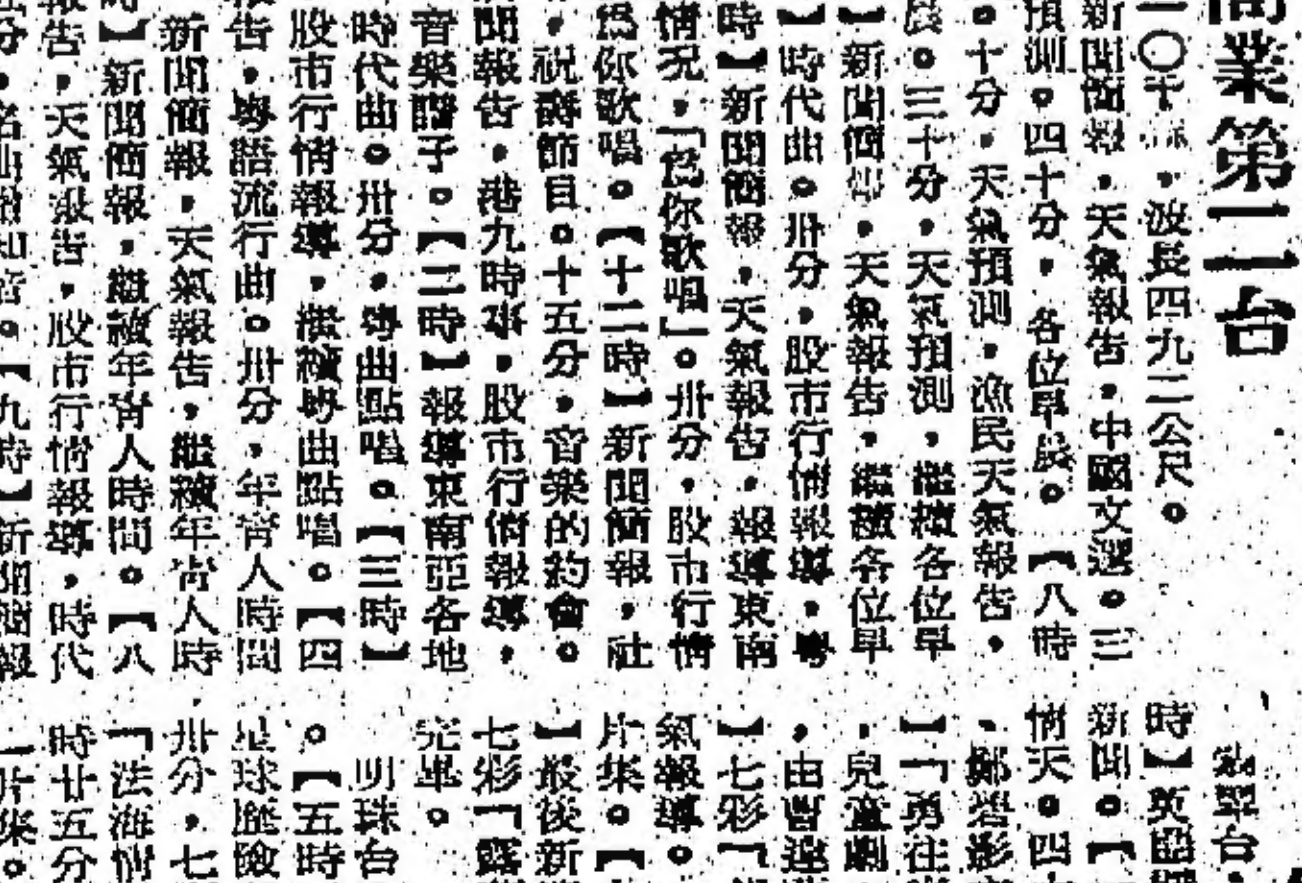 商業第二台
一〇千赫，波長四九二公尺。
新聞簡報，天氣報告，中國文選。三
預測。四十分，各位早晨。【八時
。十分，天氣預測，漁民天氣報告，
晨。三十分，天氣預測，繼續各位早
】新聞簡報，天氣報告，繼續各位早
】時代曲。卅分，股市行情報導，粵
時】新聞簡報，天氣報告，報導東南
情況，「爲你歌唱」。卅分，股市行情
爲你歌唱。【十二時】新聞簡報，社
，祝壽節目。十五分，音樂的約會。
聞報告，港九時事，股市行情報導，
音樂譜子。【二時】報導東南亞各地
時代曲。卅分，粵曲點唱。【三時】
股市行情報導，繼續粵曲點唱。【四
報告，粵語流行曲。卅分，年青人時間
新聞簡報，天氣報告，繼續年青人時
時】新聞簡報，繼續年青人時間。【八
報告，天氣報告，股市行情報導，時代
分，名曲贈知音。【九時】新聞簡報
翡翠台
時】英
新聞。【
情天。四
影
】「勇往
，兒童
，由
】七彩「
氣報導。
片集。【
】最後新
七彩「
完畢。
明珠台
。【五時
星球歷險
卅分，七
「法海情
時廿五分
片集。